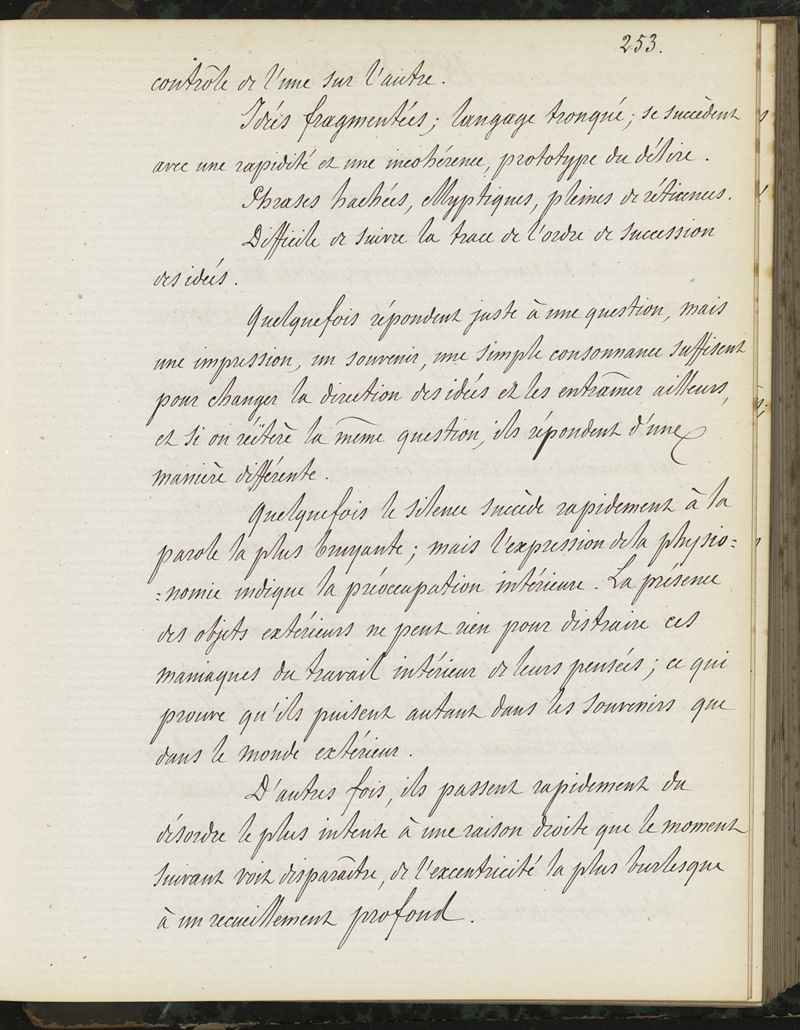 253.
contrôle de l'une sur l'autre.
Idées fragmentées; langage tronqué; se succèdent
avec une rapidité et une incohérence, prototype du délire.
Phrases hachées, ellyptiques, pleines de réticences.
Difficile de suivre la trace de l'ordre de succession
des idées.
Quelquefois répondent juste à une question, mais
une impression, un souvenir, une simple consonnance suffisent
pour changer la direction des idées et les entraîner ailleurs,
et si on réitère la même question, ils répondent d'une
manière différente.
Quelquefois le silence succède rapidement à la
parole la plus bruyante; mais l'expression de la physio=
=nomie indique la préoccupation intérieure. La présence
des objets extérieurs ne peut rien pour distraire ces
maniaques du travail intérieur de leurs pensées; ce qui
prouve qu'ils puisent autant dans les souvenirs que
dans le monde extérieur.
D'autres fois, ils passent rapidement du
désordre le plus intense à une raison droite que le moment
suivant voit disparaître, de l'excentricité la plus burlesque
à un recueillement profond.